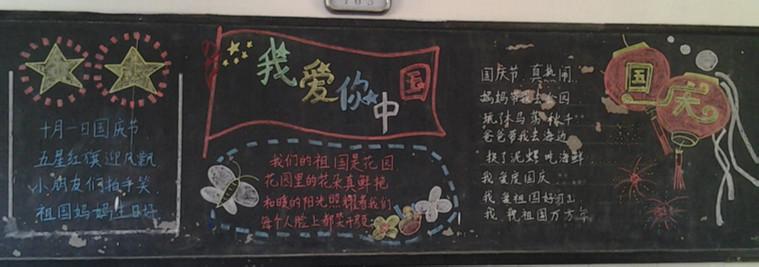 103
十月一日国庆节
五星红旗迎风飘
小朋友们拍手笑
祖国妈妈生日好
我爱你中国
我们的祖国是花园
花园里的花朵真鲜艳
和暖的阳光照耀着我们
每个人脸上都笑开颜
国庆节 真热闹
妈妈带我去公园
玩了木马荡秋千
爸爸带我去海边
挖了泥螺吃海鲜
我爱度国庆
我爱祖国好河山
我祝祖国万万年
国庆